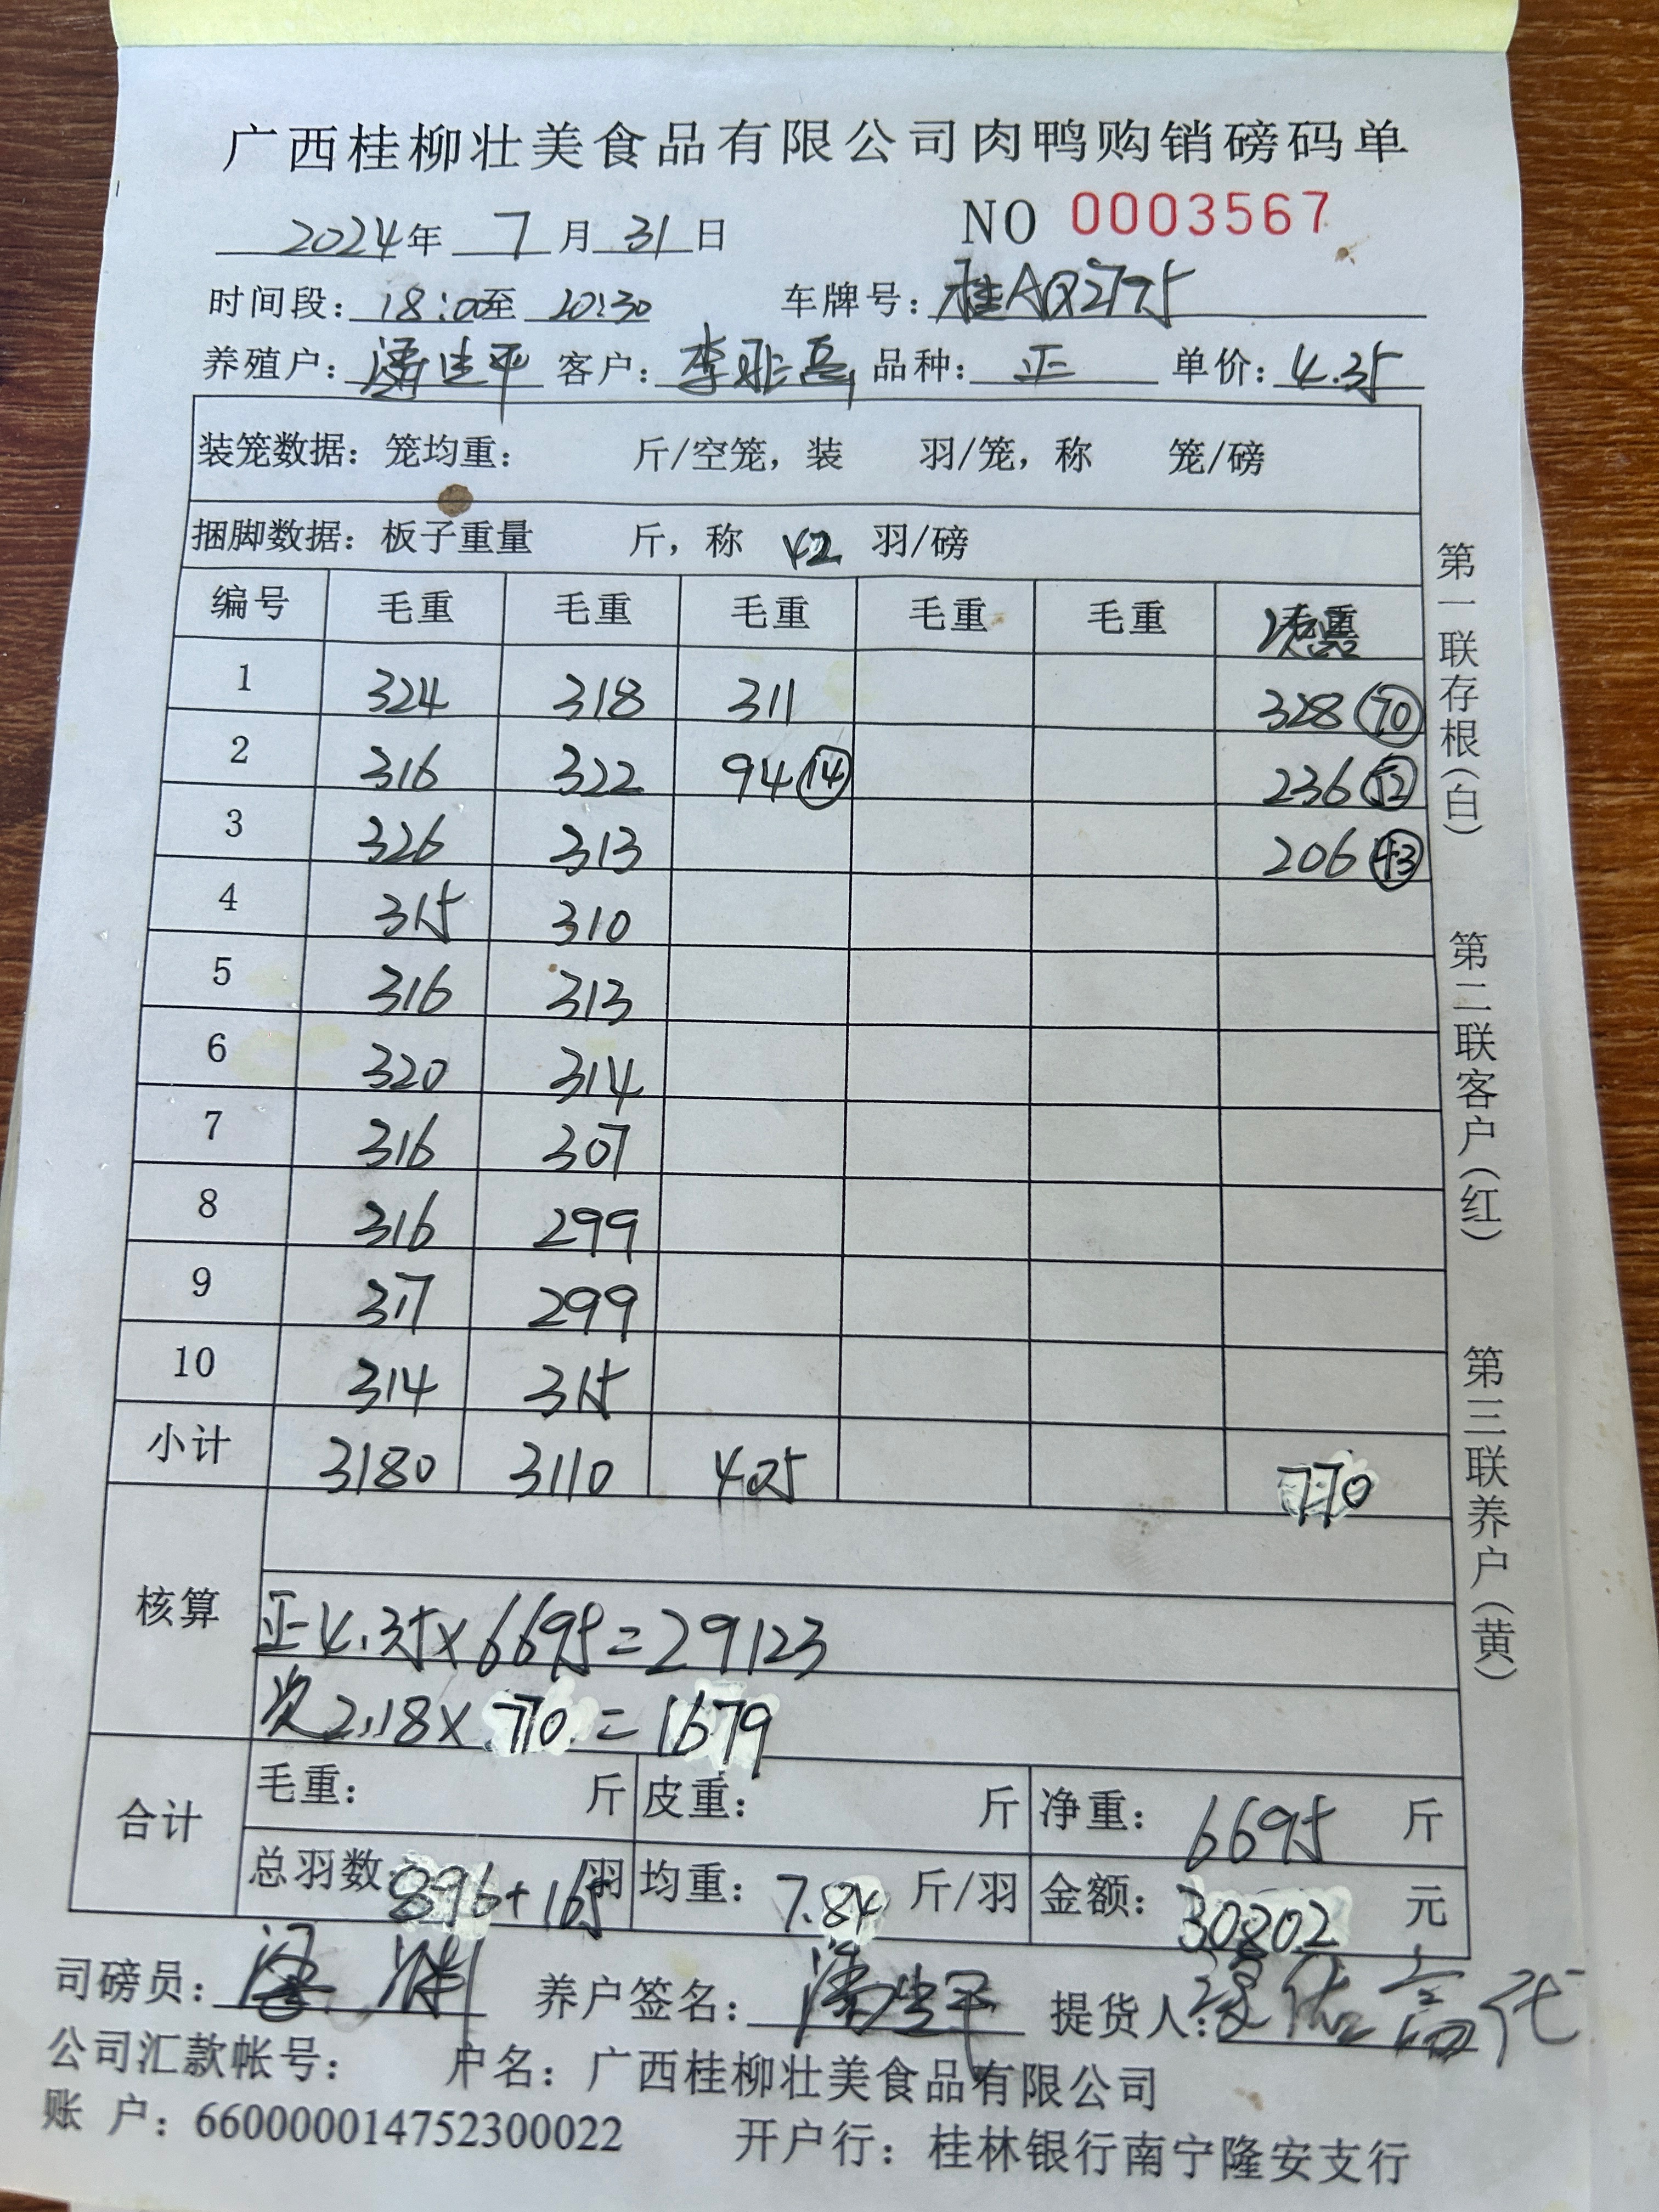 广西桂柳壮美食品有限公司肉鸭购销磅码单
2024年 7 月 31 日 NO 0003567
时间段: 18:00至 20:30 车牌号: 桂AQ2795
养殖户: 潘生平 客户: 李 品种: 正 单价: 4.35
装笼数据: 笼均重: 斤/空笼, 装 羽/笼, 称 笼/磅
捆脚数据: 板子重量 斤, 称 42 羽/磅
编号 毛重 毛重 毛重 毛重 毛重 毛重
1 324 318 311 328 70
2 316 322 94 14 236 52
3 326 313 206 43
4 315 310
5 316 313
6 320 314
7 316 307
8 316 299
9 317 299
10 314 315
小计 3180 3110 405 770
核算
正 4.35×6695=29123
次 2.18×770=1679
合计 毛重: 斤 皮重: 斤 净重: 6695 斤
总羽数: 896+165 羽 均重: 7.84 斤/羽 金额: 30802 元
司磅员: 养户签名: 潘生平 提货人: 代
公司汇款帐号: 户名: 广西桂柳壮美食品有限公司
账 户: 660000014752300022 开户行: 桂林银行南宁隆安支行
第一联存根(白)
第二联客户(红)
第三联养户(黄)